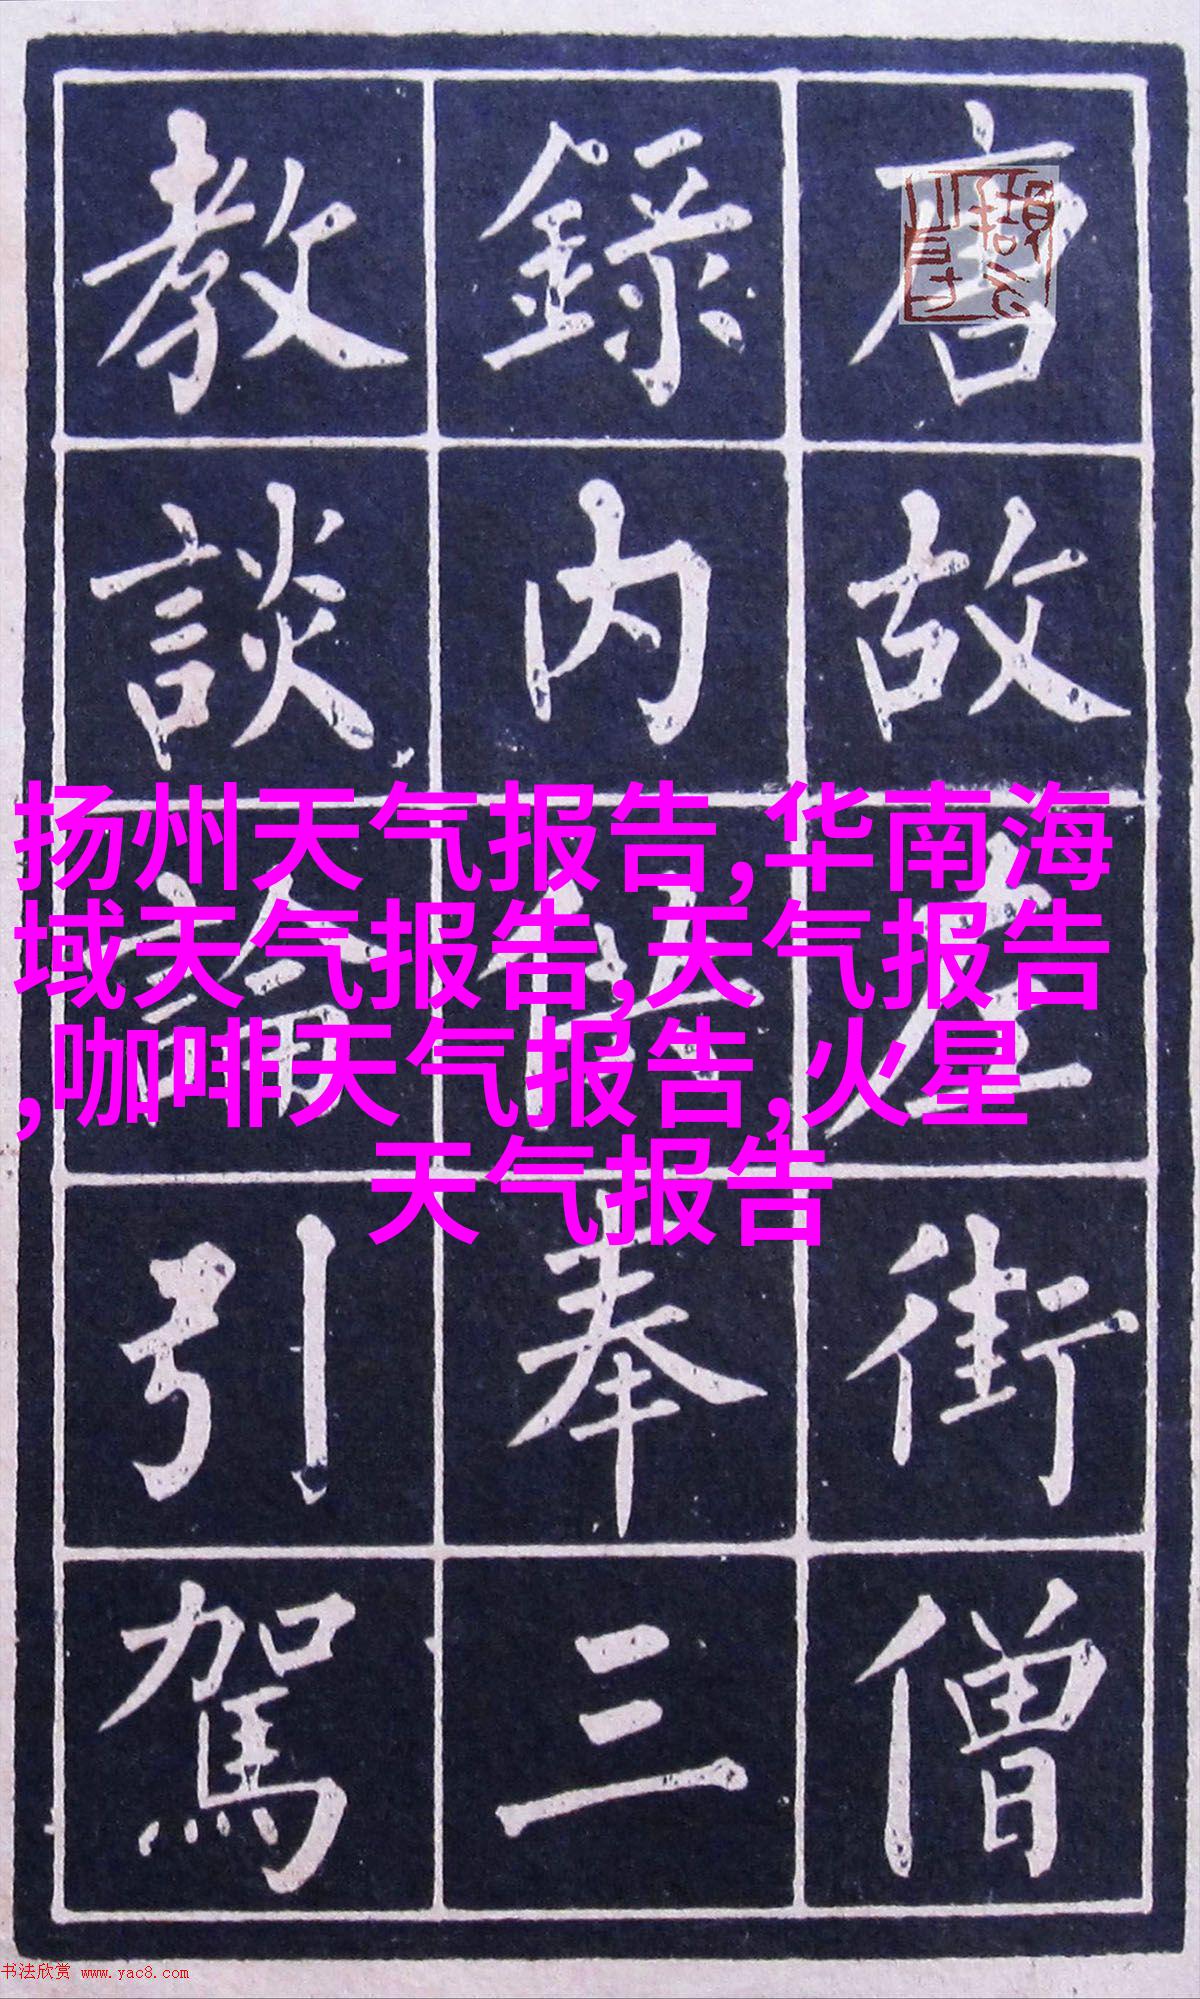 唐故左街僧
録内供奉三
教談論引駕
扬州天气报告,华南海
域天气报告,天气报告
,咖啡天气报告,火星
天气报告
书法欣赏 www.yac8.com